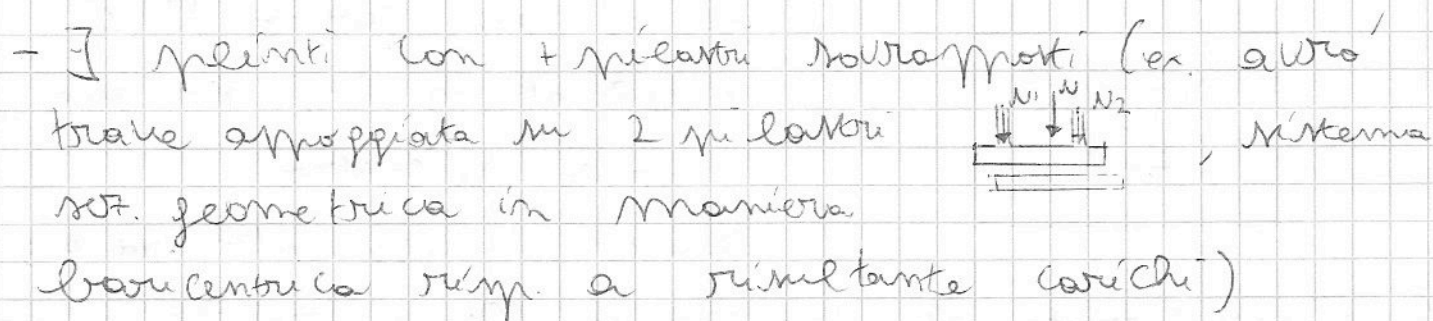 - ∃ plinti con + pilastri sovrapposti (es. avrò
trave appoggiata su 2 pilastri N1 N N2 , sistema
sez. geometrica in maniera
baricentrica risp. a risultante carichi)